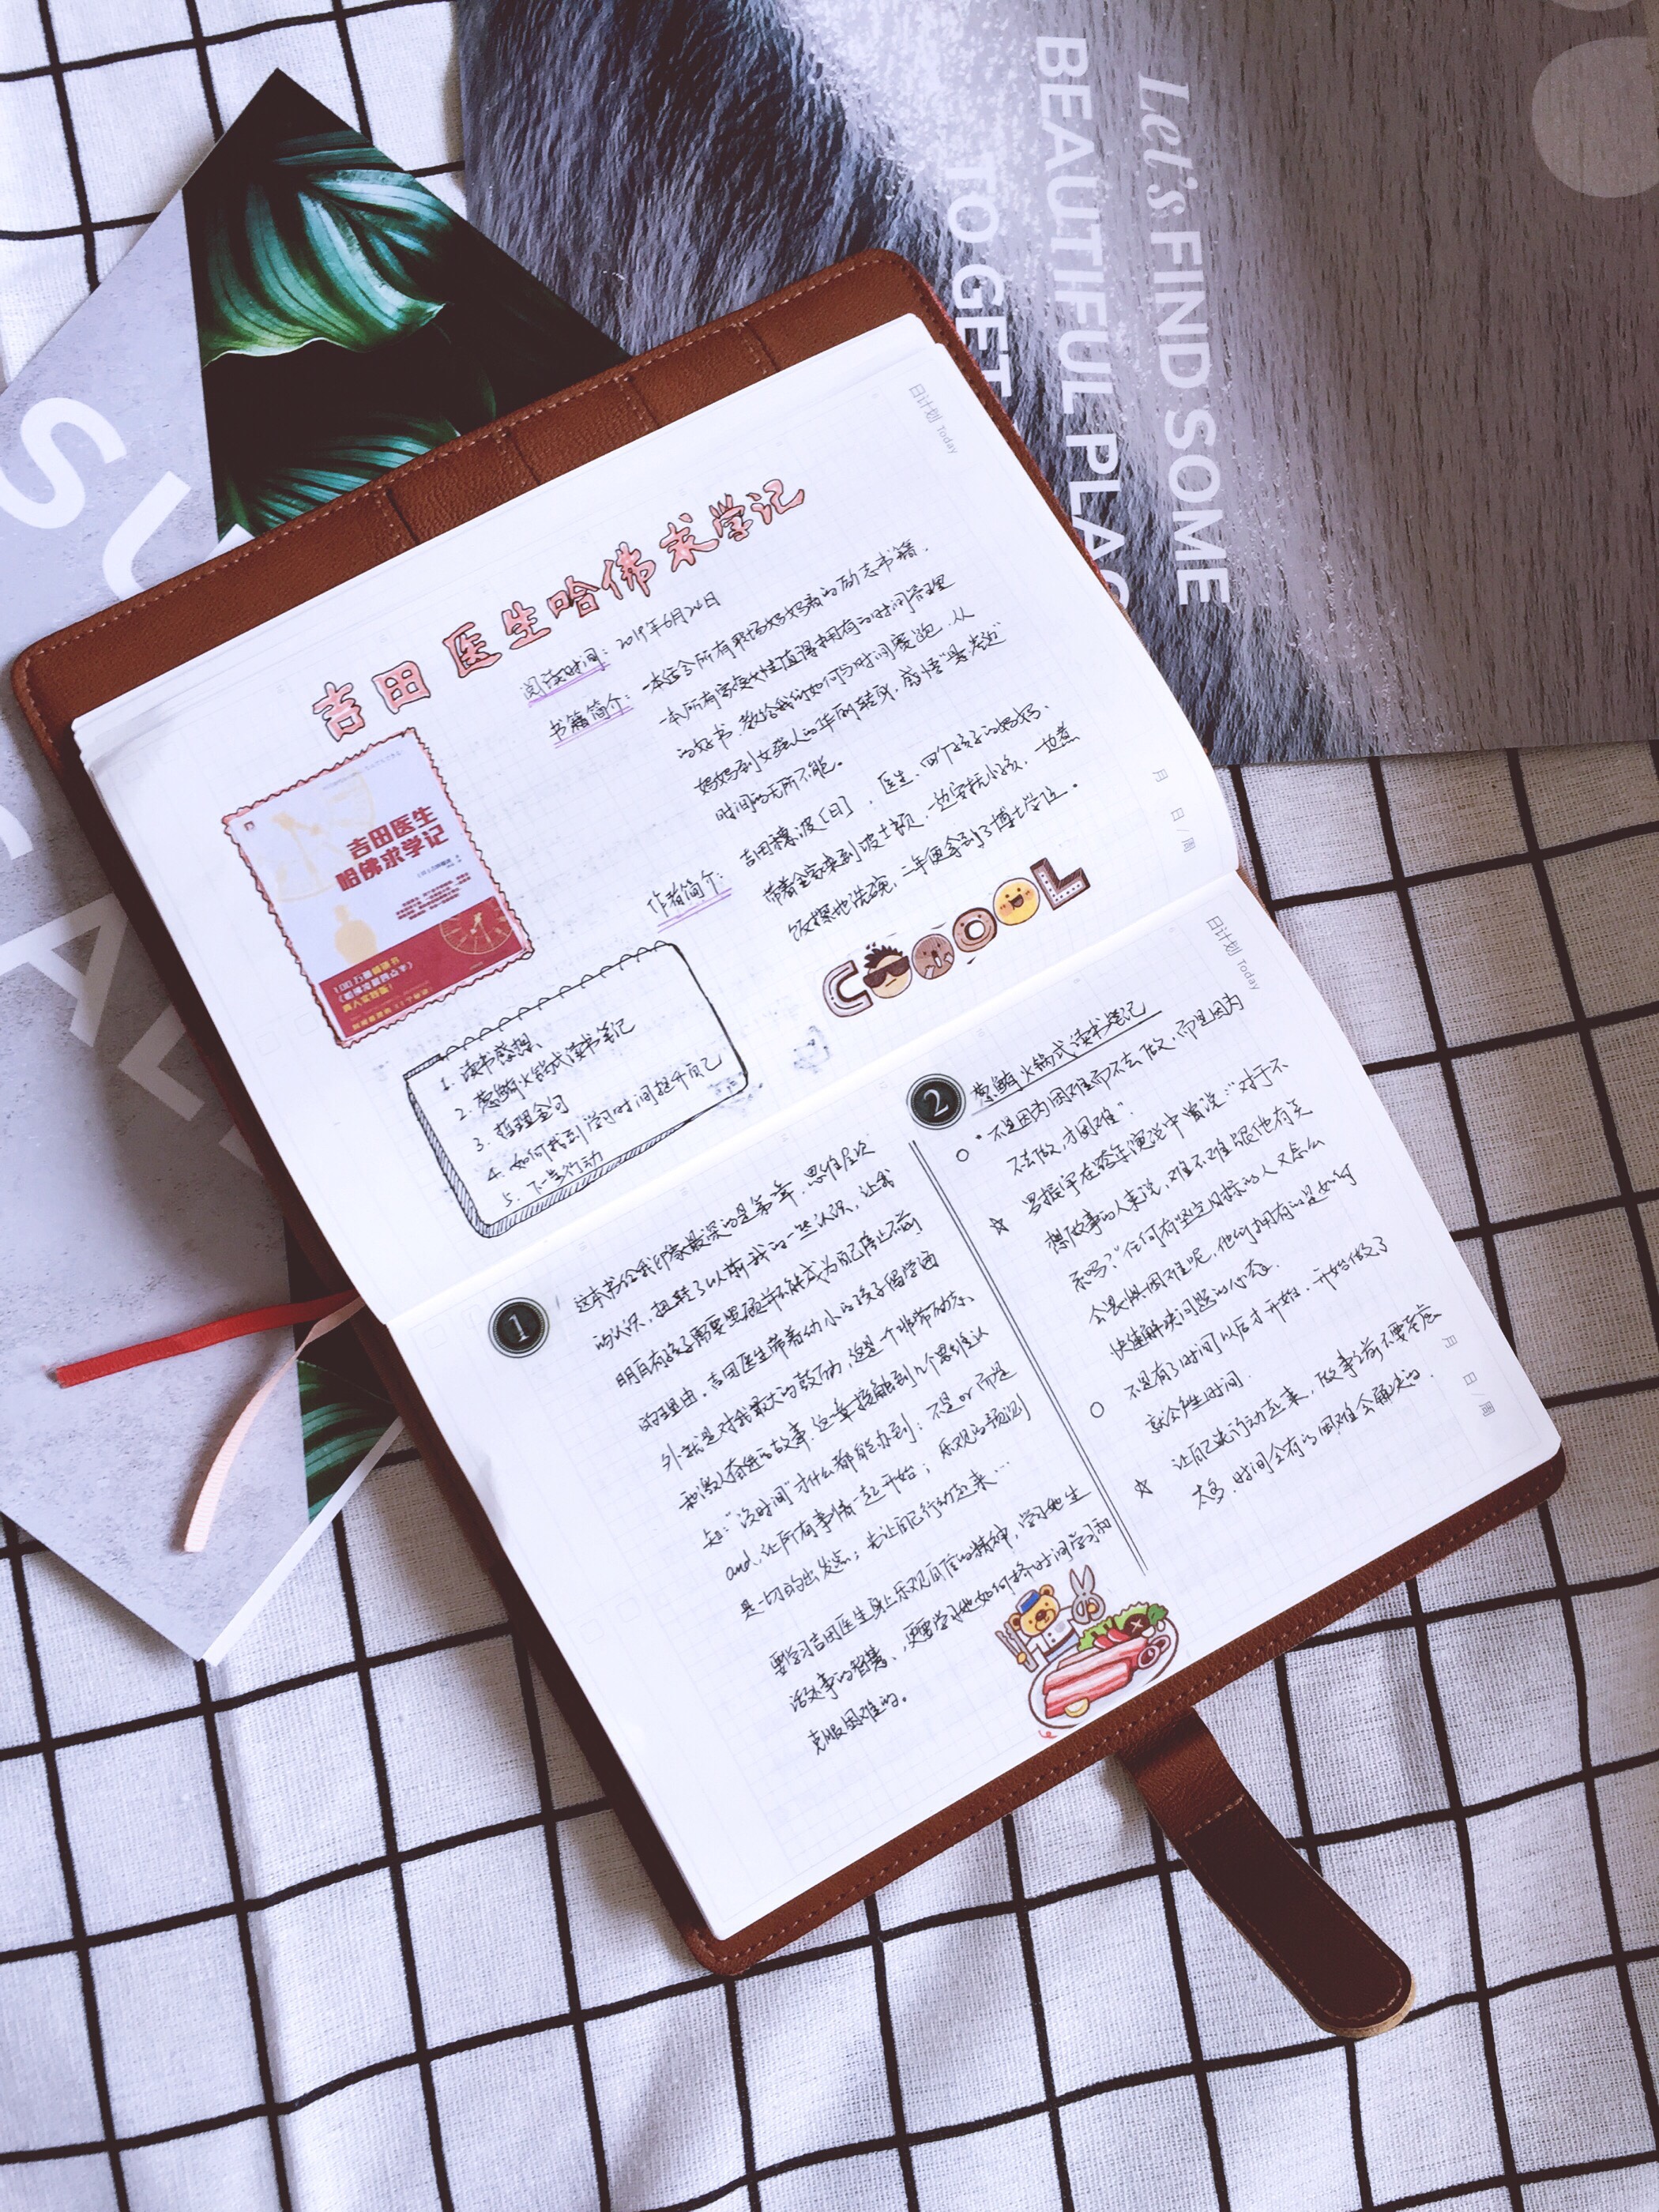 Let's FIND SOME
BEAUTIFUL PLAC
TO GET
SU
日计划 Today
吉田医生哈佛求学记
阅读时间：2019年6月26日
书籍简介：一本适合所有职场妈妈看的励志书籍，
一本所有家庭女性值得拥有的时间管理
的好书，教给我们如何与时间赛跑，从
妈妈到女强人的华丽转身，感悟“
时间的无所不能。
作者简介：吉田穗波［日］，医生，四个孩子的妈妈，
带着全家来到波士顿，一边安抚小孩，一边煮
饭擦地洗碗，二年便拿到了博士学位。
月 日/周
吉田医生
哈佛求学记
100万册畅销书
真人实践版！
COOOOL
1. 读书感想
2. 葱鲔火锅式读书笔记
3. 哲理金句
4. 如何找到学习时间提升自己
5. 下一步行动
1
这本书给我印象最深的是第一章，思维层次
的认识，扭转了以前我的一些认识，让我
明白有孩子需要照顾并不能成为自己停止不前
的理由。吉田医生带着幼小的孩子留学国
外就是对我最大的鼓励，这是一个非常励志、
和激人奋进的故事。这一章接触到几个思维认
知：“没时间”才什么都能办到；不是or而是
and，让所有事情一起开始；乐观的预测
是一切的出发点；去让自己行动起来…
要学习吉田医生身上乐观自信的精神，学习她生
活处事的智慧，更要学习她如何挤时间学习和
克服困难的。
日计划 Today
2
葱鲔火锅式读书笔记
“不是因为困难而不去做，而是因为
不去做，才困难”．
罗振宇在跨年演说中曾说：“对于不
想做事的人来说，难不难跟他有关
系吗？”任何有坚定目标的人又怎么
会畏惧困难呢，他们拥有的是如何
快速解决问题的心态．
不是有了时间以后才开始．开始做了
就会产生时间．
让自己先行动起来，做事之前不要考虑
太多．时间会有的困难会解决的．
月 日/周